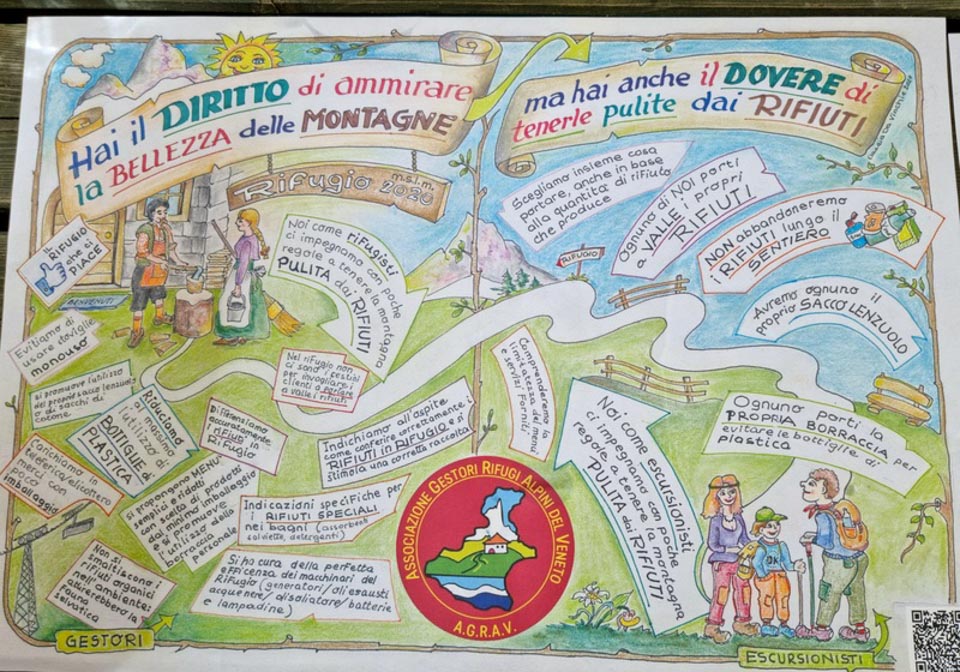 Hai il DIRITTO di ammirare
la BELLEZZA delle MONTAGNE
ma hai anche il DOVERE di
tenerle pulite dai RIFIUTI
Rifugio m.s.l.m.
2020
IL
RIFUGIO
che ci
PIACE
BENVENUTI
Noi come rifugisti
ci impegnamo con poche
regole a tenere la montagna
PULITA dai RIFIUTI
Evitiamo di
usare stoviglie
monouso
Si promuove l'utilizzo
del proprio sacco lenzuolo
o di sacchi di
cotone
Riduciamo
al massimo
l'utilizzo di
BOTTIGLIE di
PLASTICA
Carichiamo in
teleferica/elicottero
merci con
imballaggio
Non si
smaltiscono i
rifiuti organici
nell'ambiente:
attirerebbero la
fauna
selvatica
Differenziamo
accuratamente
i rifiuti in
Rifugio
Si propongono MENU
semplici e ridotti
con scelta di prodotti
dal minimo imballaggio
e si promuove
l'utilizzo della
borraccia
personale
Nel rifugio non
ci sono i cestini
per invogliare i
clienti a portare
a valle i rifiuti
Indichiamo all'ospite
come conferire correttamente i
RIFIUTI in RIFUGIO e si
stimola una corretta raccolta
Indicazioni specifiche per
i RIFIUTI SPECIALI
nei bagni (assorbenti
salviette, detergenti)
Si ha cura della perfetta
efficenza dei macchinari del
Rifugio (generatori/oli esausti
acque nere/disoliatore/batterie
e lampadine)
GESTORI
ASSOCIAZIONE GESTORI RIFUGI ALPINI DEL VENETO
A.G.R.A.V.
Scegliamo insieme cosa
portare, anche in base
alla quantità di rifiuto
che produce
Ognuno di NOI porti
a VALLE i propri
RIFIUTI
NON abbandoneremo
i RIFIUTI lungo il
SENTIERO
RIFUGIO
Avremo ognuno il
proprio SACCO LENZUOLO
Comprenderemo la
limitatezza dei mezzi
e servizi forniti
Noi come escursionisti
ci impegnamo con poche
regole a tenere la montagna
PULITA dai RIFIUTI
Ognuno porti la
PROPRIA BORRACCIA per
evitare le bottiglie di
plastica
OK
ESCURSIONISTI